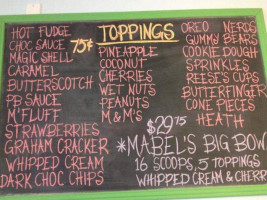 TOPPINGS
HOT FUDGE
CHOC SAUCE 75¢
MAGIC SHELL
CARAMEL
BUTTERSCOTCH
PB SAUCE
M'FLUFF
STRAWBERRIES
GRAHAM CRACKER
WHIPPED CREAM
DARK CHOC CHIPS
PINEAPPLE
COCONUT
CHERRIES
WET NUTS
PEANUTS
M & M'S
OREO NERDS
GUMMY BEARS
COOKIE DOUGH
SPRINKLES
REESE'S CUPS
BUTTERFINGER
CONE PIECES
HEATH
$29.75
*MABEL'S BIG BOW
16 SCOOPS, 5 TOPPINGS
WHIPPED CREAM & CHERR